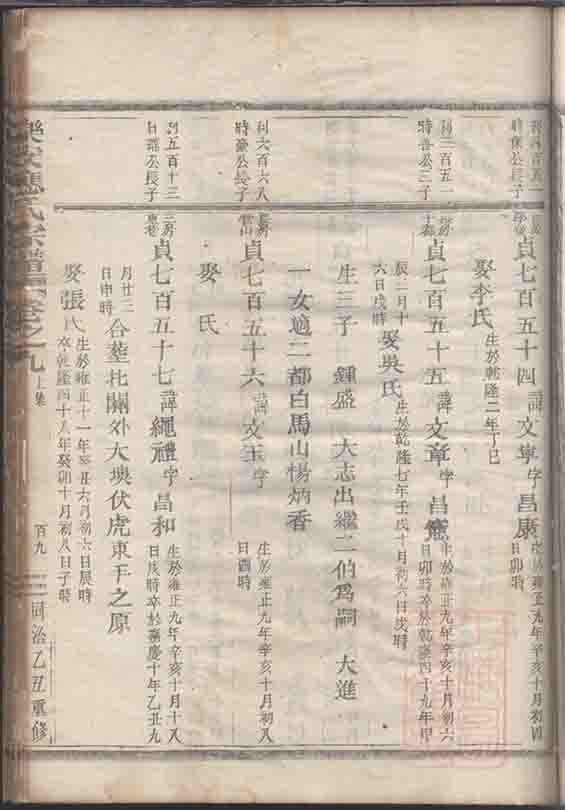 利四百五一
時保公長子
長房
貞七百五十四 諱文寧字昌康 生於雍正九年辛亥十月初四
日卯時
娶李氏 生於乾隆二年丁巳
利三百五一
時 公三子
貞七百五十五 諱文章字昌憲 生於雍正九年辛亥十月初六
日卯時卒於乾隆四十九年甲
辰二月十
六日戌時
娶吳氏 生於乾隆七年壬戌十月初六日戌時
生三子 鍾盛 大志出繼二伯為嗣 大進
一女適二都白馬山楊炳香
利六百六八
時 公長子
長房
貞七百五十六 諱文玉字 生於雍正九年辛亥十月初八
日酉時
娶 氏
利五百十三
日 公長子
三房
貞七百五十七 諱繩禮字昌和 生於雍正九年辛亥十月十八
日戌時卒於嘉慶十年乙丑九
月廿三
日申時
合塟北關外大塽伏虎東干之原
娶張氏 生於雍正十一年癸丑六月初六日辰時
卒乾隆四十八年癸卯十月初八日子時
氏宗譜 卷之九 上集 百九 同治乙丑重修